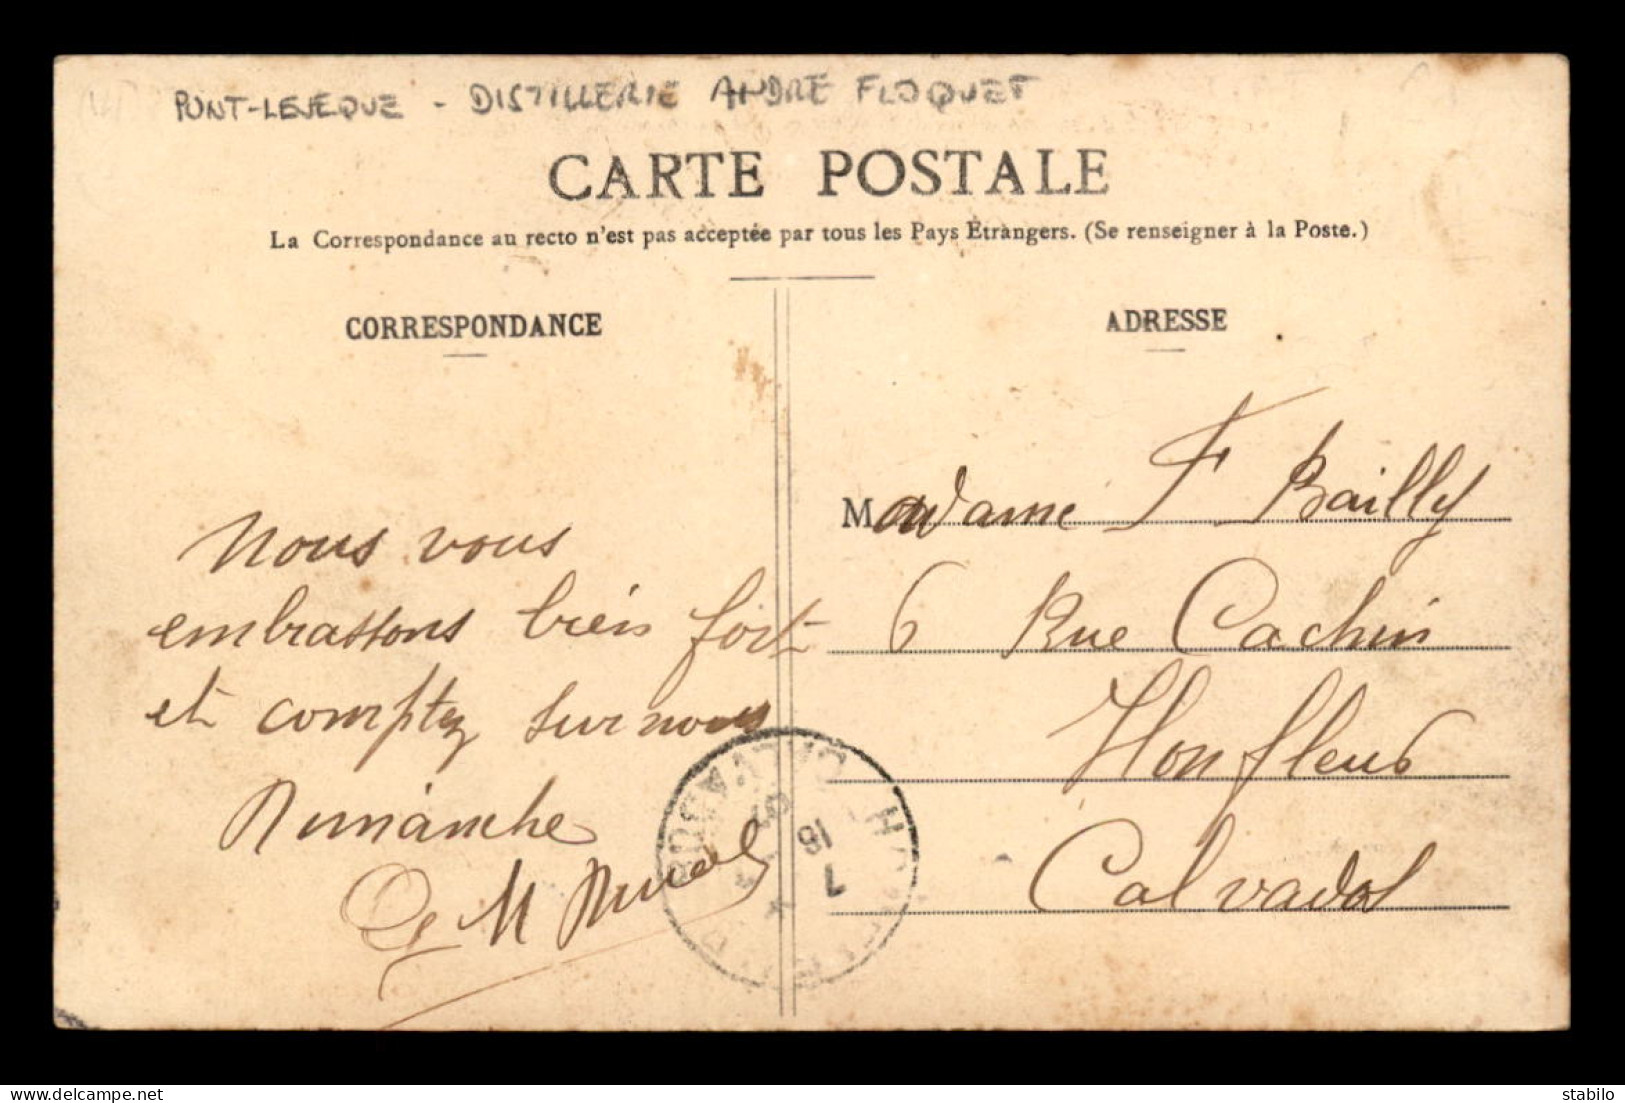 PONT-LEVEQUE - DISTILLERIE ANDRE FLOQUET
CARTE POSTALE
La Correspondance au recto n'est pas acceptée par tous les Pays Étrangers. (Se renseigner à la Poste.)
CORRESPONDANCE
Nous vous
embrassons bien fort
et comptez sur nous
Dimanche
M
ADRESSE
Madame F Bailly
6 Rue Cachin
Honfleur
Calvados
HONFLEUR
CALVADOS
7
16
delcampe.net
stabilo